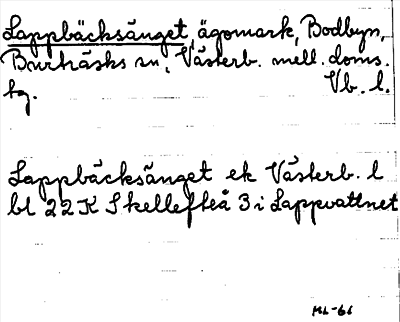 Lappbäcksänget, ägomark, Bodbyn,
Burträsks sn, Västerb. mell. doms.
hg. Vb. l.
Lappbäcksänget ek Västerb. l
bl 22K Skellefteå 3 i Lappvattnet